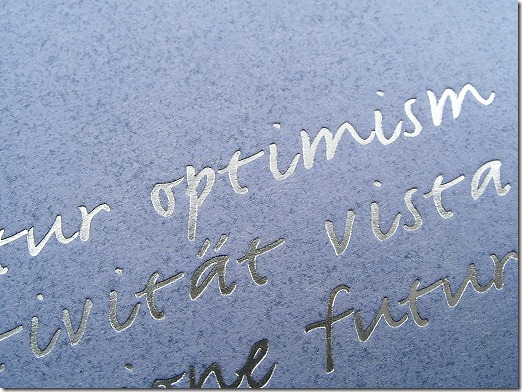 tur optimism
tivität vista
ione futur